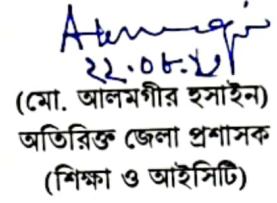 ২২.০৮.২১
(মো. আলমগীর হুসাইন)
অতিরিক্ত জেলা প্রশাসক
(শিক্ষা ও আইসিটি)